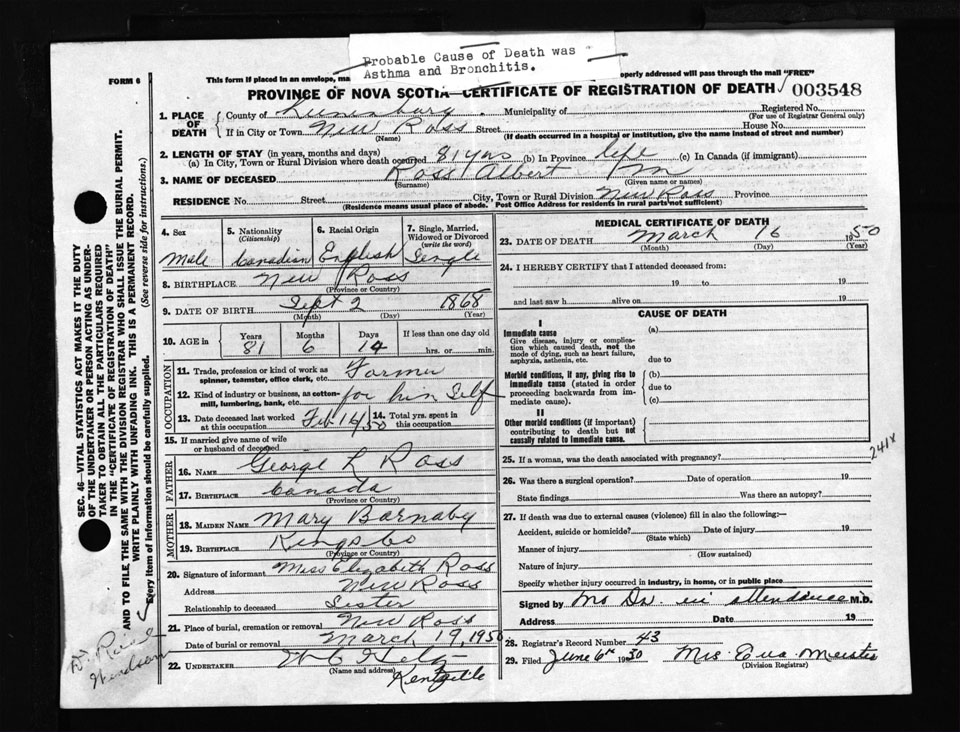 Probable Cause of Death was
Asthma and Bronchitis.
FORM 6
This form if placed in an envelope, ma properly addressed will pass through the mail "FREE"
PROVINCE OF NOVA SCOTIA—CERTIFICATE OF REGISTRATION OF DEATH 003548
1. PLACE OF DEATH
County of Lunenburg. Municipality of Registered No.
(For use of Registrar General only)
If in City or Town New Ross Street House No.
(Name) (If death occurred in a hospital or institution, give the name instead of street and number)
2. LENGTH OF STAY (in years, months and days)
(a) In City, Town or Rural Division where death occurred 81 yrs (b) In Province life (c) In Canada (if immigrant)
3. NAME OF DECEASED Ross Albert Wm
(Surname) (Given name or names)
RESIDENCE No. Street City, Town or Rural Division New Ross Province
(Residence means usual place of abode. Post Office Address for residents in rural parts not sufficient)
4. Sex 5. Nationality (Citizenship) 6. Racial Origin 7. Single, Married, Widowed or Divorced (write the word)
Male Canadian English Single
8. BIRTHPLACE New Ross
(Province or Country)
9. DATE OF BIRTH Sept 2 1868
(Month) (Day) (Year)
10. AGE in Years Months Days If less than one day old
81 6 14 hrs. or min.
OCCUPATION
11. Trade, profession or kind of work as spinner, teamster, office clerk, etc. Farmer
12. Kind of industry or business, as cotton-mill, lumbering, bank, etc. for him Self
13. Date deceased last worked at this occupation Feb 14/50 14. Total yrs. spent in this occupation
15. If married give name of wife or husband of deceased
FATHER
16. NAME George L Ross
17. BIRTHPLACE Canada
(Province or Country)
MOTHER
18. MAIDEN NAME Mary Barnaby
19. BIRTHPLACE Kings Co
(Province or Country)
20. Signature of informant Miss Elizabeth Ross
Address New Ross
Relationship to deceased Sister
21. Place of burial, cremation or removal New Ross
Date of burial or removal March 19, 1950
22. UNDERTAKER
(Name and address)
Kentville
MEDICAL CERTIFICATE OF DEATH
23. DATE OF DEATH March 16 1950
(Month) (Day) (Year)
24. I HEREBY CERTIFY that I attended deceased from:
19 to 19
and last saw h alive on 19
CAUSE OF DEATH
I
Immediate cause (a)
Give disease, injury or complication which caused death, not the mode of dying, such as heart failure, asphyxia, asthenia, etc. due to
Morbid conditions, if any, giving rise to immediate cause (stated in order proceeding backwards from immediate cause). (b)
due to
(c)
II
Other morbid conditions (if important) contributing to death but not causally related to immediate cause.
241X
25. If a woman, was the death associated with pregnancy?
26. Was there a surgical operation? Date of operation 19
State findings Was there an autopsy?
27. If death was due to external causes (violence) fill in also the following:—
Accident, suicide or homicide? Date of injury 19
(State which)
Manner of injury
(How sustained)
Nature of injury
Specify whether injury occurred in industry, in home, or in public place
Signed by No Dr. in attendance M.D.
Address Date 19
28. Registrar's Record Number 43
29. Filed June 6th 1950 Mrs. Eva Meister
(Division Registrar)
SEC. 46—VITAL STATISTICS ACT MAKES IT THE DUTY
OF THE UNDERTAKER OR PERSON ACTING AS UNDER-
TAKER TO OBTAIN ALL THE PARTICULARS REQUIRED
IN THE "CERTIFICATE OF REGISTRATION OF DEATH"
AND TO FILE THE SAME WITH THE DIVISION REGISTRAR WHO SHALL ISSUE THE BURIAL PERMIT.
WRITE PLAINLY WITH UNFADING INK. THIS IS A PERMANENT RECORD.
Every item of information should be carefully supplied. (See reverse side for instructions.)
Dr.